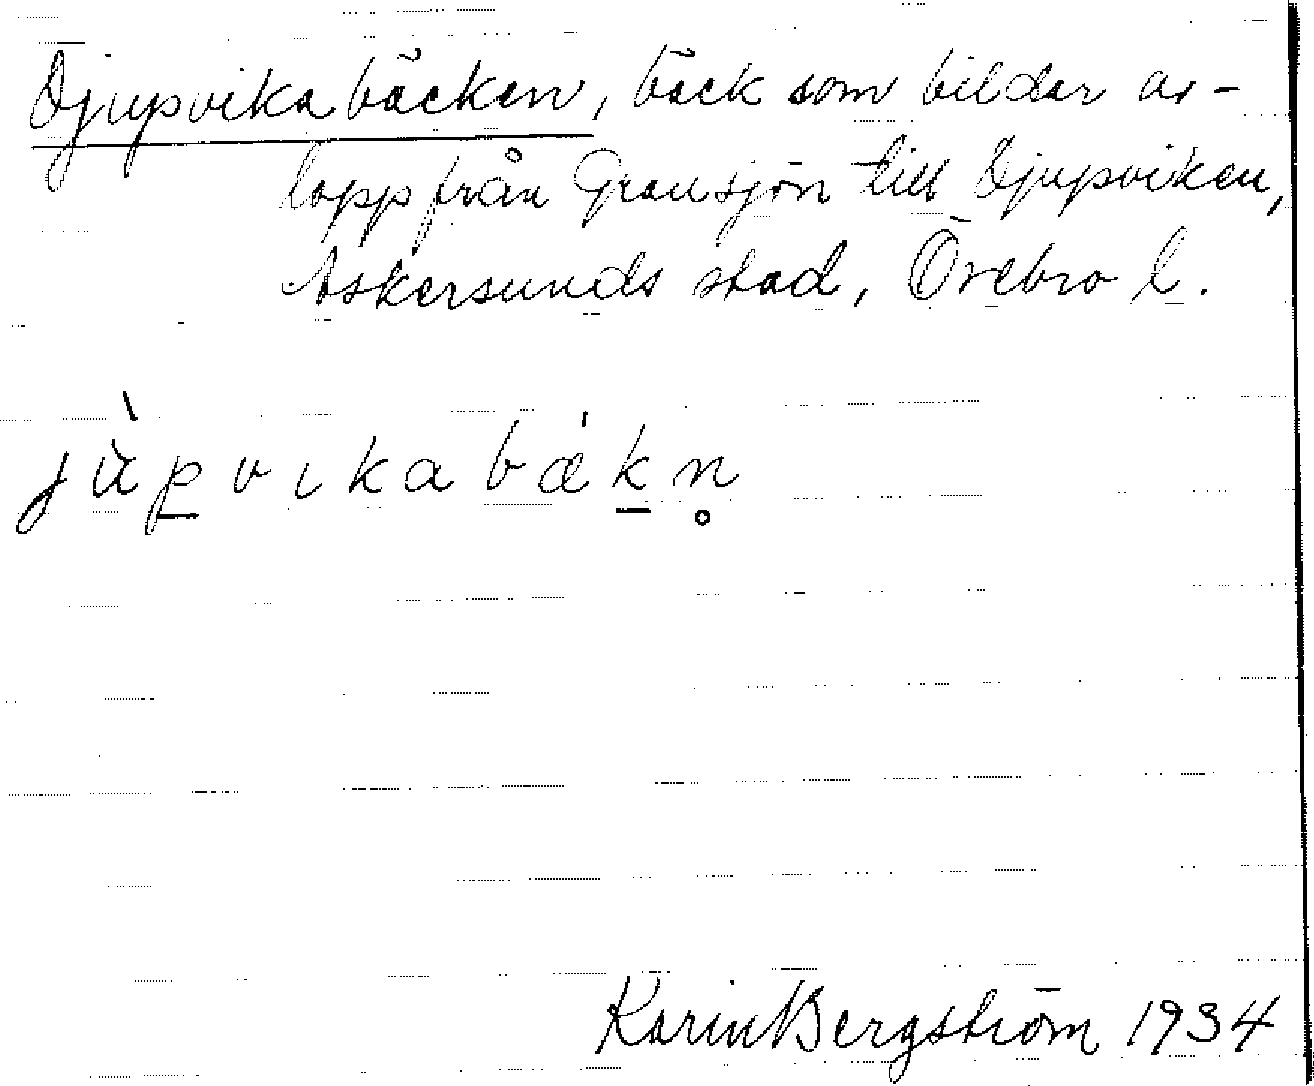 Djupvikabäcken, bäck som bildar av-
lopp från Gransjön till Djupviken,
Askersunds stad, Örebro l.
jùpvikabǽkn̥
Karin Bergström 1934